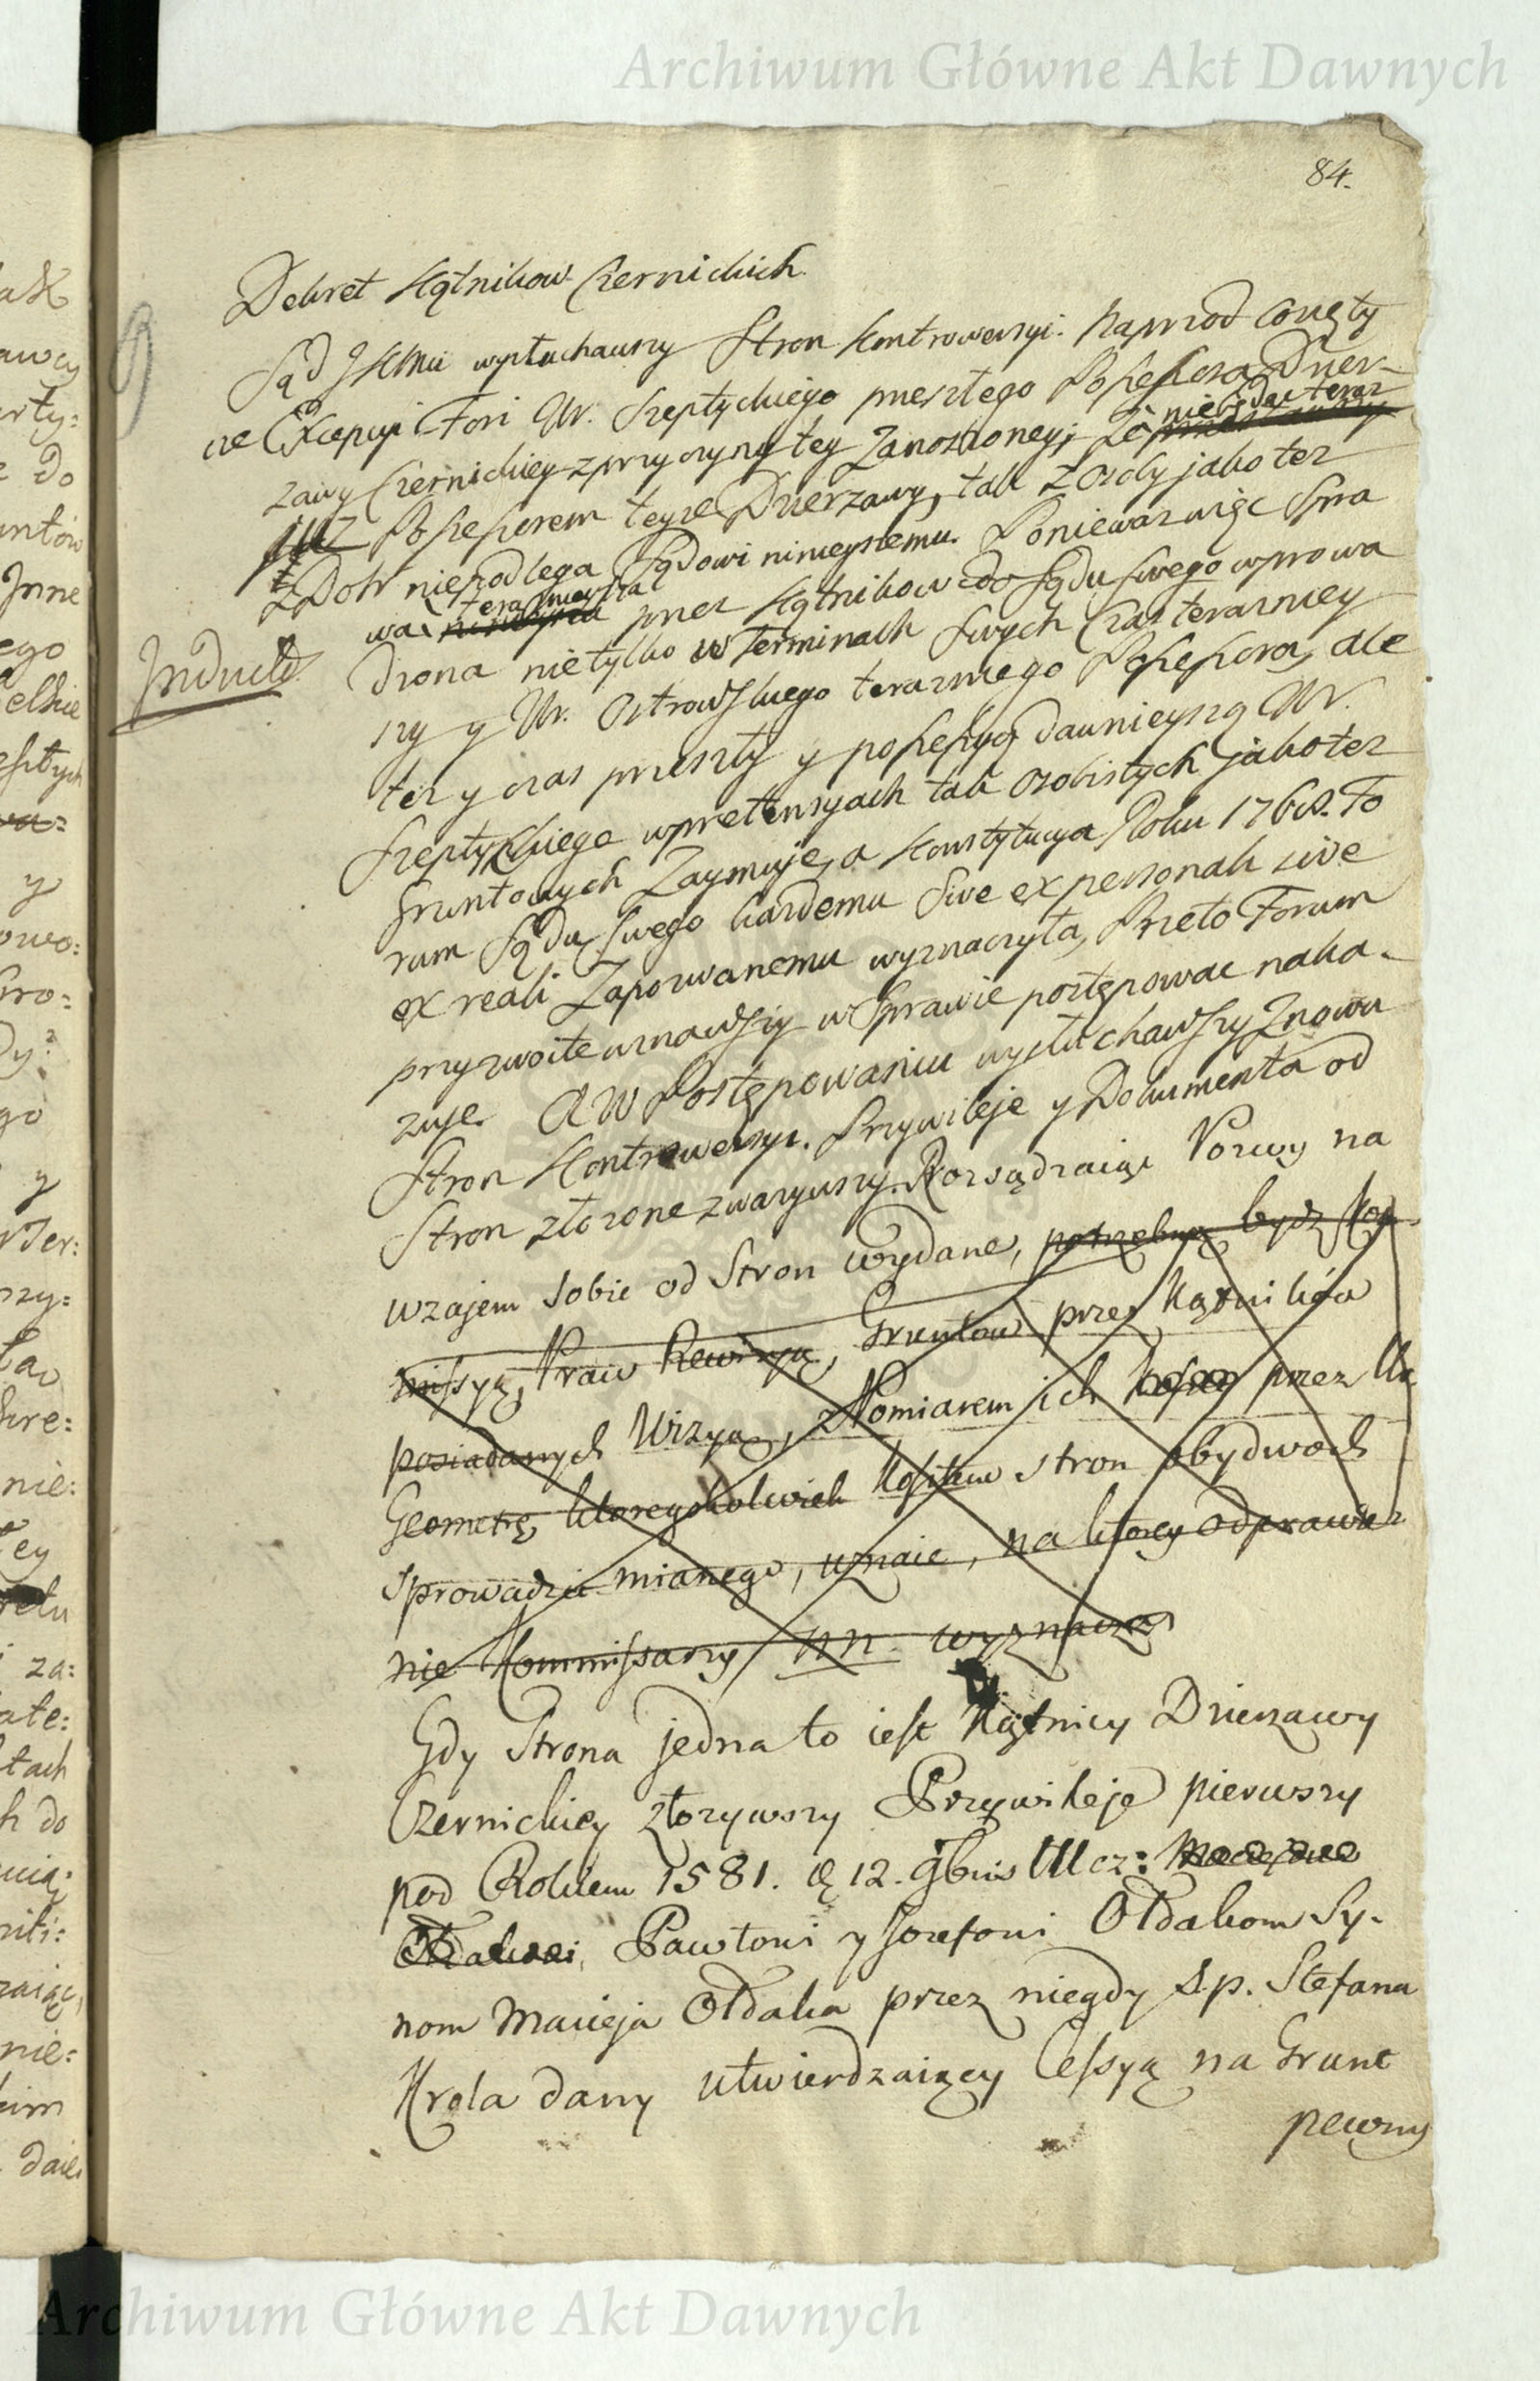 Archiwum Główne Akt Dawnych
84.
Dekret Kątnikow Czernickich
Sąd JKMci wysłuchawszy Stron Kontrowersyi. Naprzod co się ty
cze Excepcyi Fori Ur. Szeptyckiego przeszłego Possessora Dzier-
nie będąc teraz
zawy Czernickiey z przyczyny tey zanoszoney, że
już Possessorem teyże Dzierzawy, tak z Osoby jako też
z Dobr nie podlega Sądowi ninieyszemu. Ponieważ więc Spra
teraznieysza
wa przez Kątnikow do Sądu swego wprowa
Indructa
dzona nie tylko w Terminach swych Czas terazniey
szy y Ur. Ostrowskiego teraznieg̃o Possessora, ale
też y czas przeszły y possessyą dawnieyszą Ur.
Szeptyckiego w pretensyach tak osobistych jako też
gruntowych zaymuje, a Konstytucya Roku 1768. Fo
rum Sądu swego kazdemu sive ex personali sive
ex reali zapozwanemu wyznaczyła, Przeto Forum
przyzwoite uznawszy w Sprawie postępowac naka-
zuje. A w Postępowaniu wysłuchawszy Znowu
Stron Kontrowersyi. Przywileje y Dokumenta od
Stron złozone zwazywszy. Rozsądzaiąc Pozwy na
wzajem sobie od Stron wydane, potrzebną bydz Kom
missyą, Praw Rewizyą, Gruntow przez Kątnikow
posiadanych Wizyą, z Pomiarem ich przez Ur.
Geometrę ktoregokolwiek kosztem stron obydwoch
sprowadzić mianego, uznaie, na ktorey odprawie
nie Kommissarzy nn. wyznacza
Gdy Strona jedna to iest Kątnicy Dzierzawy
Czernickiey złozywszy Przywileje pierwszy
pod Rokiem 1581. d 12. 9bris Ucz:
Ołdakowi, Pawłowi y Jozefowi Ołdakom Sy-
nom Macieja Ołdaka przez niegdy s.p. Stefana
Krola dany utwierdzaiący Cessyą na Grunt
pewny
Archiwum Główne Akt Dawnych